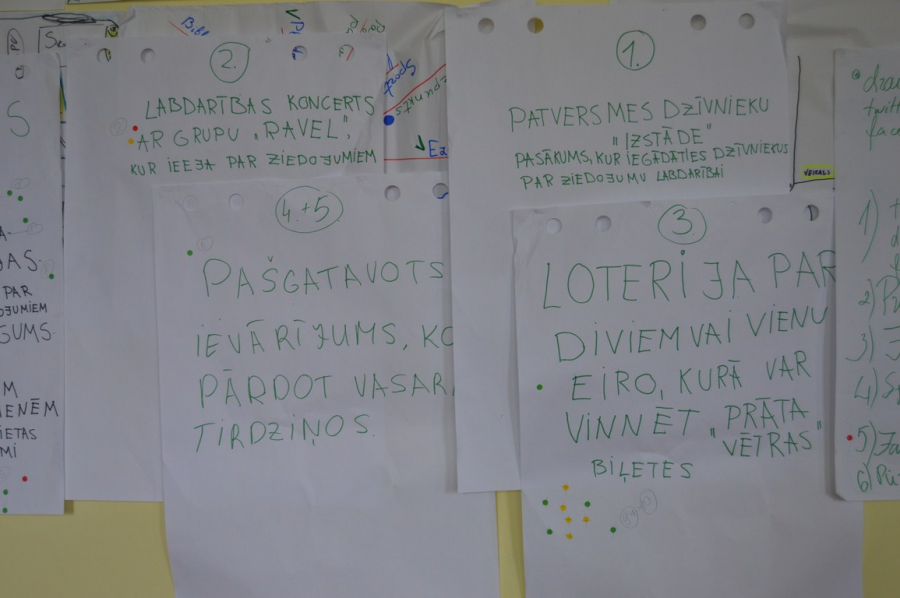 2.
LABDARĪBAS KONCERTS
AR GRUPU "RAVEL",
KUR IEEJA PAR ZIEDOJUMIEM
1.
PATVERSMES DZĪVNIEKU
"IZSTĀDE"
PASĀKUMS, KUR IEGĀDĀTIES DZĪVNIEKUS
PAR ZIEDOJUMU LABDARĪBAI
4.+5
PAŠGATAVOTS
IEVĀRĪJUMS, KO
PĀRDOT VASAR
TIRDZIŅOS.
3
LOTERIJA PAR
DIVIEM VAI VIENU
EIRO, KURĀ VAR
VINNĒT "PRĀTA
VĒTRAS"
BIĻETES
S
PAR
GUMS
M
VEIKALS
1)
2)
3)
4)
5)
6)